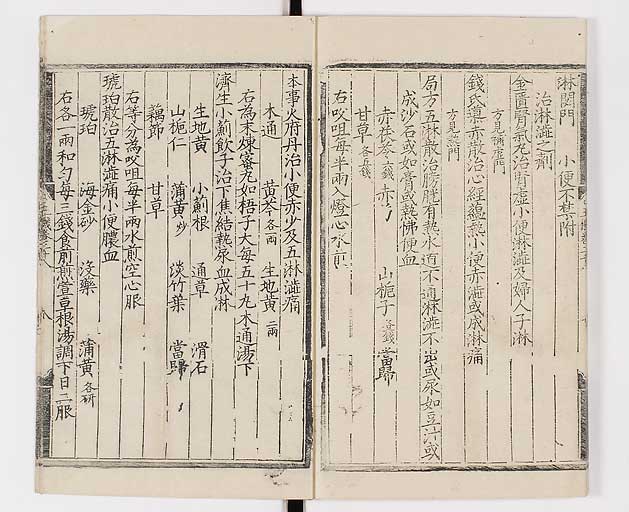 淋閟門　小便不禁附
治淋澁之劑
金匱腎氣丸治腎虛小便淋澁及婦人子淋
方見諸虛門
錢氏導赤散治心經蘊熱小便赤澁或成淋痛
方見熱門
局方五淋散治膀胱有熱水道不通淋澁不出或尿如豆汁或
成沙石或如膏或熱怫便血
赤茯苓六錢　赤　山梔子　當歸
甘草各五錢
右㕮咀每半兩入燈心水煎
本事火府丹治小便赤少及五淋澁痛
木通　黄芩各一兩　生地黄二兩
右為末煉蜜丸如梧子大每五十丸木通湯下
濟生小薊飲子治下焦結熱尿血成淋
生地黄　小薊根　通草　滑石
山梔仁　蒲黄炒　淡竹葉　當歸
藕節　甘草
右等分㕮咀每半兩水煎空心服
琥珀散治五淋澁痛小便膿血
琥珀　海金砂　沒藥　蒲黄各研
右各一兩和勻每三錢食前煎萱草根湯調下日二服